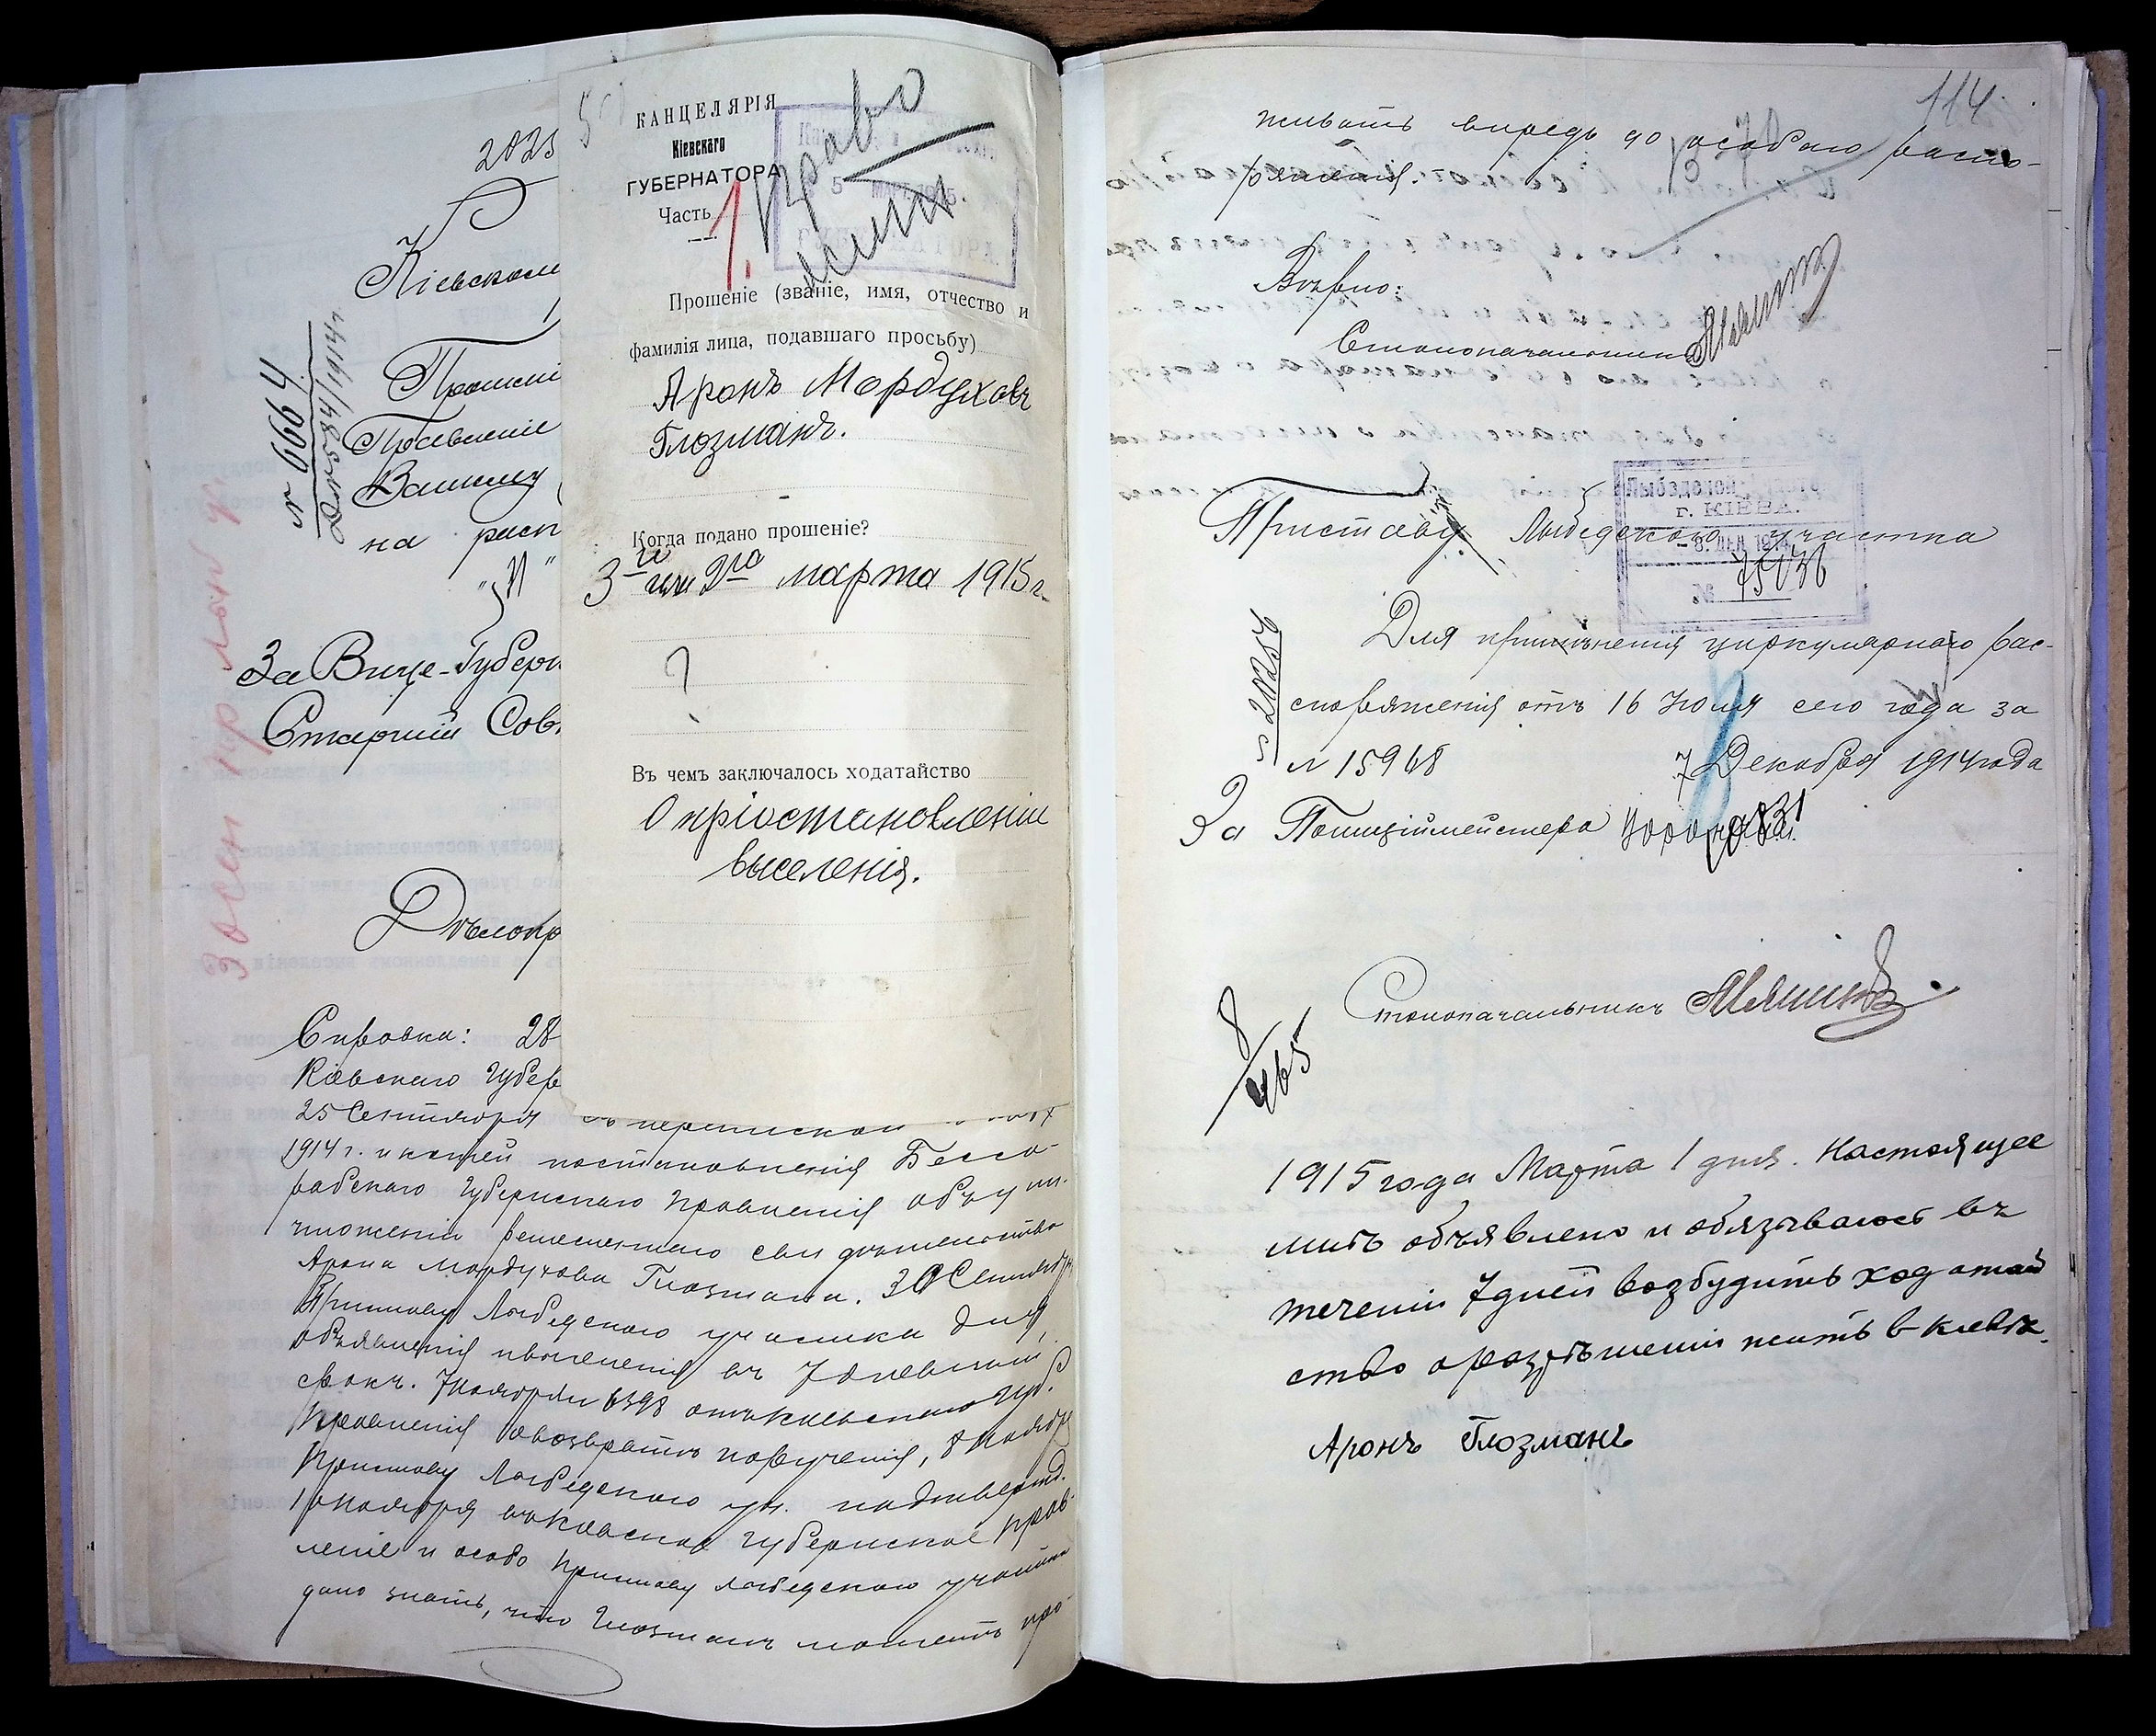 2023
Кіевском
Прошені
Правленіе
Вашему
на расп
"И"
№ 6664
1914 г.
За Вице-Губерн
Старшій Сов
Дѣлопр
Справка: 28
Кіевскаго Губер
25 Сентября съ перепискою
1914 г. и копіей постановленія Бесса-
рабскаго Губернскаго Правленія объ уни-
чтоженіи ремесленнаго свидѣтельства
Арона Мордухова Глозмана. 30 Сентября
Приставу Лыбедского участка для
объявленія и выселенія въ 7 дневный
срокъ. 7 ноября № 6398 отъ Кіевскаго Губ.
Правленія о возвратѣ порученія, 8 ноября
Приставу Лыбедского уч. подтвержд.
ноября въ Кіевское Губернское Прав-
леніе и особо Приставу Лыбедского участка
дано знать, что Глозманъ можетъ про-
КАНЦЕЛЯРІЯ
Кіевскаго
ГУБЕРНАТОРА
Часть 1.
право
5 МАР 1915
Прошеніе (званіе, имя, отчество и
фамилія лица, подавшаго просьбу)
Аронъ Мордуховъ
Глозманъ.
Когда подано прошеніе?
3-го или 2го марта 1915 г.
?
Въ чемъ заключалось ходатайство
О пріостановленіи
выселенія.
114
живать впредь до особаго распо-
ряженія.
Вѣрно:
Столоначальникъ
Приставу Лыбедского участка
г. КІЕВА.
- 8. ДЕК 1914
№
№ 20256
Для примѣненія циркулярнаго рас-
споряженія отъ 16 Іюля сего года за
№ 15968 7 Декабря 1914 года
За Полиціймейстера
Столоначальникъ
8
465
1915 года Марта 1 дня. Настоящее
мнѣ объявлено и обязываюсь въ
теченіи 7 дней возбудить ходатай
ство о разрѣшеніи жить в Кіевѣ.
Аронъ Глозманъ